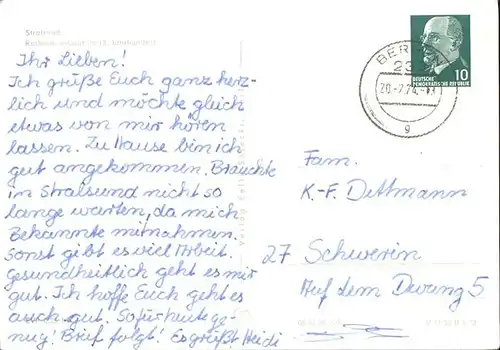 Stralsund
Ihr Lieben!
Ich grüße Euch ganz herz-
lich und möchte gleich
etwas von mir hören
lassen. Zu Hause bin ich
gut angekommen. Brauchte
in Stralsund nicht so
lange warten, da mich
Bekannte mitnahmen.
Sonst gibt es viel Arbeit.
Gesundheitlich geht es mir
gut. Ich hoffe Euch geht es
auch gut. So für heute ge-
nug! Brief folgt! Es grüßt Heidi
BERLIN
23
20.-7.74.
g
DEUTSCHE
DEMOKRATISCHE REPUBLIK
10
Fam.
K.-F. Dettmann
27 Schwerin
Auf dem Dwang 5